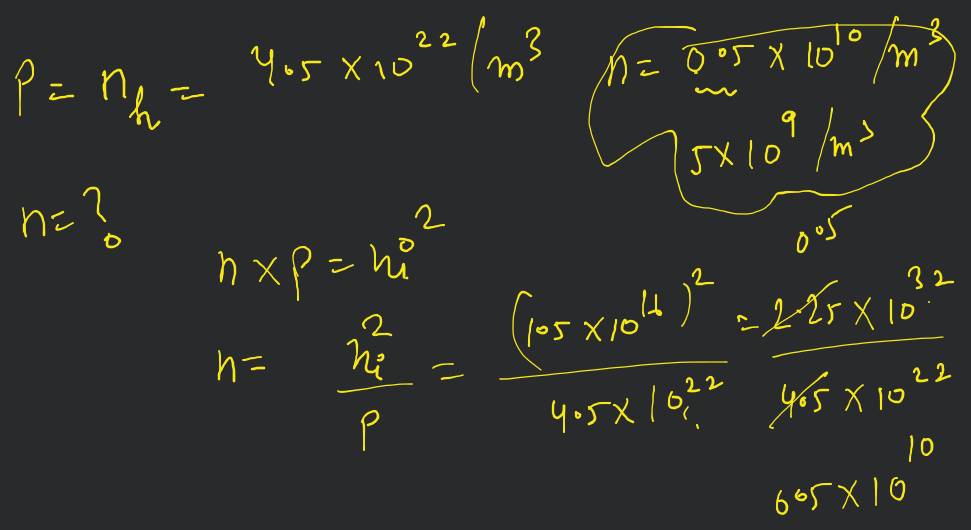 p = n_h = 4.5 × 10^22 / m^3
n = 0.5 × 10^10 / m^3
5 × 10^9 / m^3
n = ?
0.5
n × p = n_i^2
n = n_i^2 / p = (1.5 × 10^16)^2 / 4.5 × 10^22 = 2.25 × 10^32 / 4.5 × 10^22
0.5 × 10^10